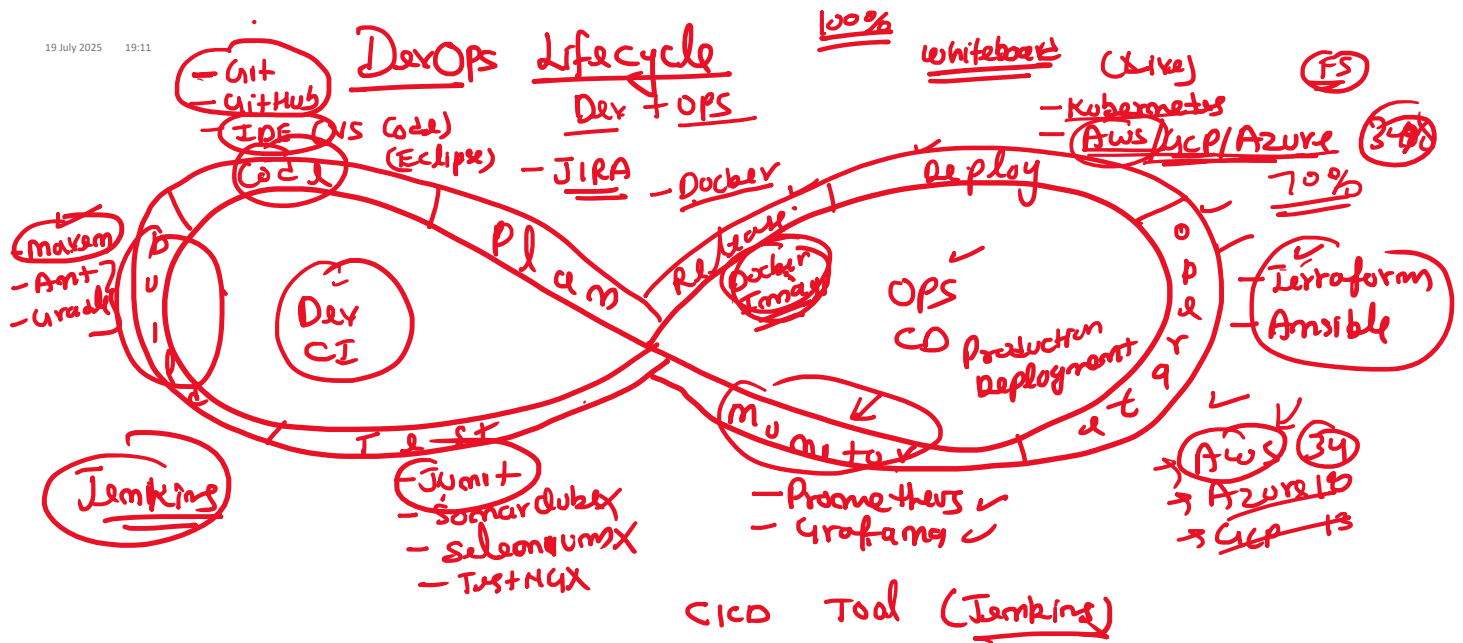 19 July 2025 19:11
DevOps Lifecycle
Dev + OPS
100%
Whiteboard (Live)
FS
- Git
- GitHub
- IDE (VS Code)
(Eclipse)
Code
- JIRA
- Docker
- Kubernetes
- AWS/GCP/Azure 34%
70%
Plan
Release
Deploy
Operate
Docker Image
- Maven
- Ant
- Gradle
Build
Dev
CI
OPS
CD
Production
Deployment
- Terraform
- Ansible
Test
Monitor
Jenkins
- Junit
- SonarQube X
- Selenium X
- TestNG X
- Prometheus
- Grafana
AWS 34
Azure 18
GCP 13
CICD Tool (Jenkins)